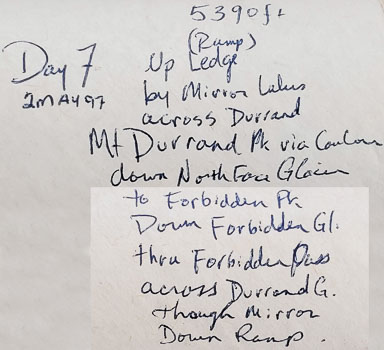 5390ft
(Ramp)
Day 7
2MAY97
Up Ledge
by Mirror Lakes
across Durrand
Mt Durrand Pk via Couloir
down North Face Glacier
to Forbidden Pk
Down Forbidden Gl.
thru Forbidden Pass
across Durrand G.
though Mirror
Down Ramp.